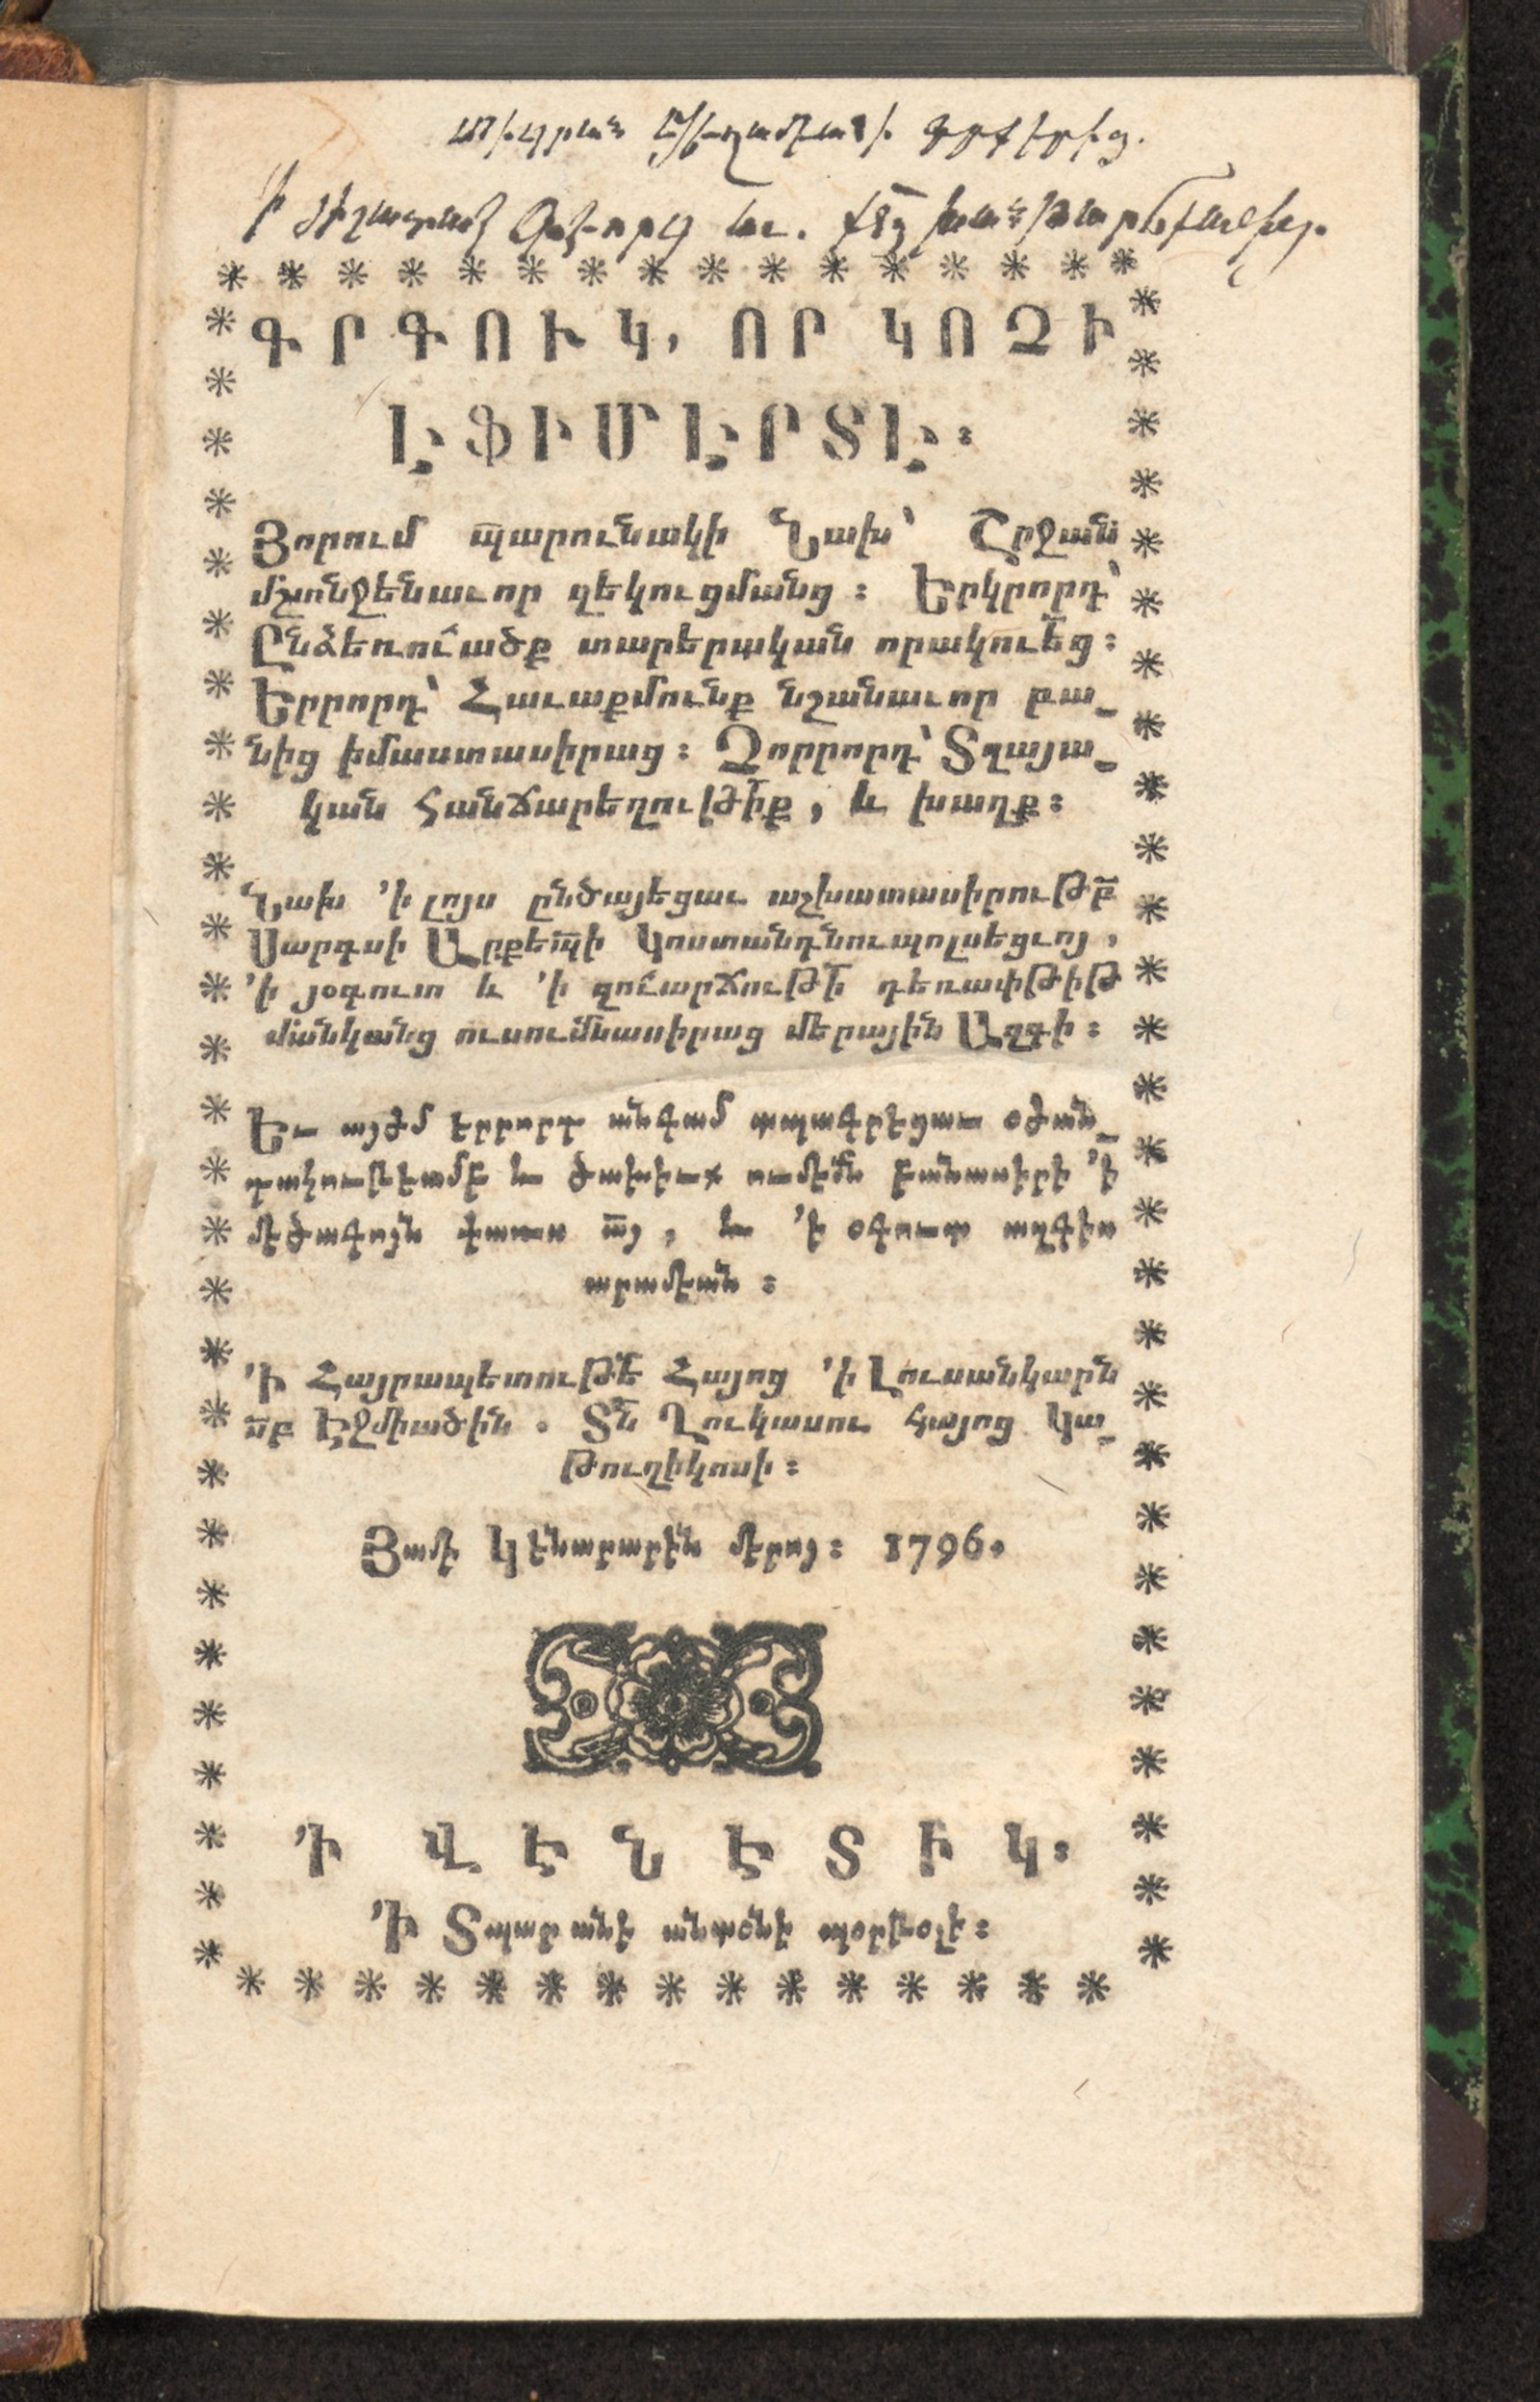 ԳՐԳՈՒԿ, ՈՐ ԿՈՉԻ
ԷՖԻՄԷՐՏԷ։
Յորում պարունակի Նախ՝ Շրջան
մշտնջենաւոր զեկուցմանց։ Երկրորդ՝
Ընձեռուածք տարերական որակուեց։
Երրորդ՝ Հաւաքմունք նշանաւոր բա֊
նից իմաստասիրաց։ Չորրորդ՝ Տղայա֊
կան Հանճարեղութիք, և խաղք։
Նախ ՚ի լոյս ընծայեցաւ աշխատասիրութբ
Սարգսի Կոստանդնուպօլսեցւոյ,
՚ի յօգուտ և ՚ի զուարճութի դեռափթիթ
մանկանց ուսումնասիրաց մերային Ազգի։
Եւ այժմ երրորդ անգամ տպագրեցաւ օժան֊
դակութեամբ և ծախիւք ումեմն բանասիրի ՚ի
մեծագոյն փառս այ, և ՚ի օգուտ ազգիս
արամեան։
՚Ի Հայրապետութե Հայոց ՚ի Լուսանկարն
սբ Էջմիածին . Տն Ղուկասու Հայոց Կա֊
թուղիկոսի։
Յամի Կենարարին մերոյ։ 1796.
՚Ի ՎԷՆԷՏԻԿ։
՚Ի Տպարանի անտօնի պօրթօլի։